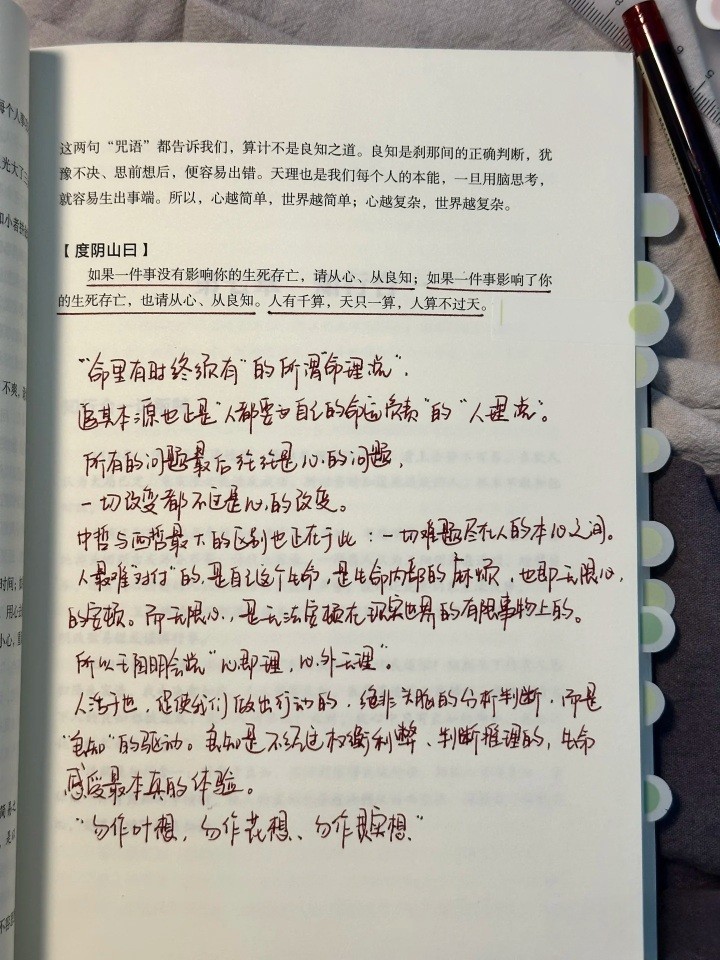 这两句“咒语”都告诉我们，算计不是良知之道。良知是刹那间的正确判断，犹
豫不决、思前想后，便容易出错。天理也是我们每个人的本能，一旦用脑思考，
就容易生出事端。所以，心越简单，世界越简单；心越复杂，世界越复杂。
【度阴山曰】
如果一件事没有影响你的生死存亡，请从心、从良知；如果一件事影响了你
的生死存亡，也请从心、从良知。人有千算，天只一算，人算不过天。
“命里有时终须有”的所谓“命理说”，
追其本源也正是“人都要为自己的命运负责”的“人理说”。
所有的问题最后终终是心的问题，
一切改变都不过是心的改变。
中哲与西哲最大的区别也正在于此：一切难题尽在人的本心之间。
人最难“对付”的，是自己这个生命，是生命内部的麻烦，也即无限心，
的安顿。而无限心，是无法安顿在现实世界的有限事物上的。
所以王阳明会说“心即理，心外无理”。
人活于世，促使我们做出行动的，绝非头脑的分析判断，而是
“良知”的驱动。良知是不经过权衡利弊、判断推理的，生命
感受最本真的体验。
“勿作叶想，勿作花想、勿作果实想”
不爽，
时间；如
用心去
小心，